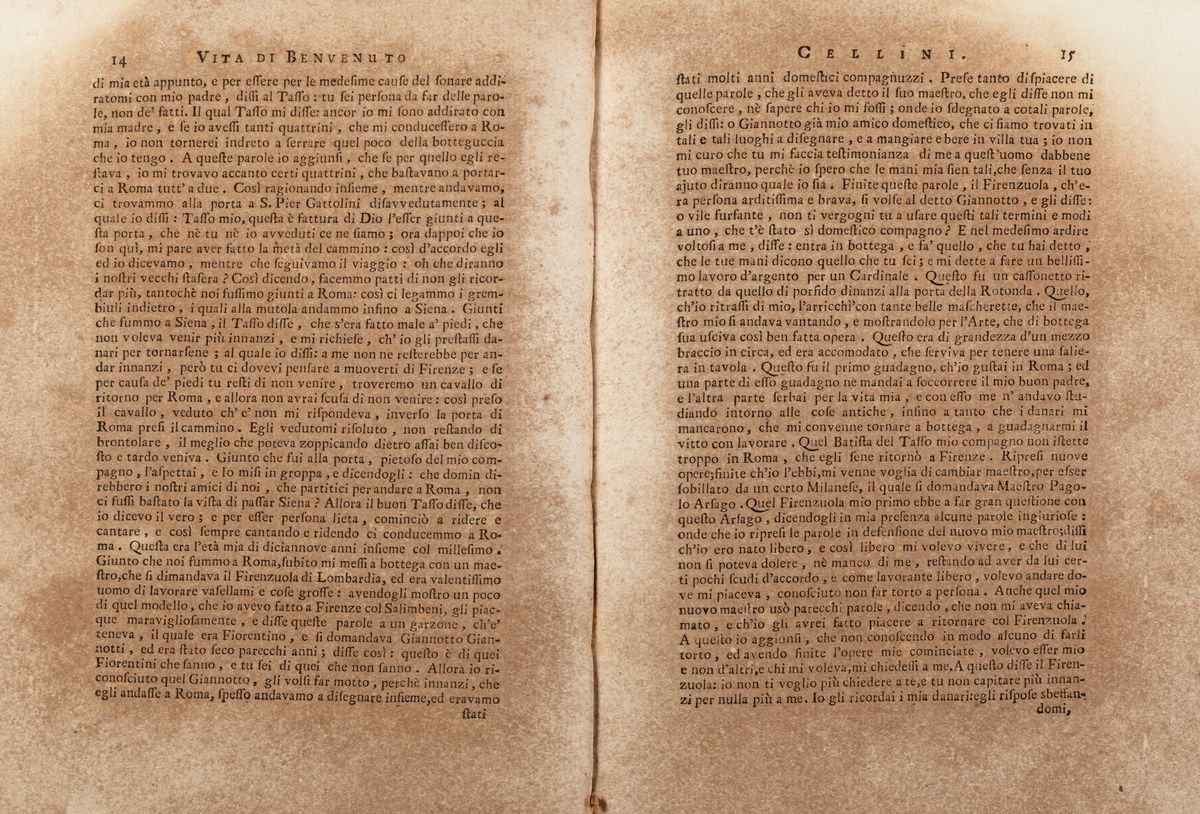 14 VITA DI BENVENUTO
di mia età appunto, e per eſſere per le medeſime cauſe del ſonare addi-
ratomi con mio padre, diſſi al Taſſo: tu ſei perſona da far delle paro-
le, non de' fatti. Il qual Taſſo mi diſſe: ancor io mi ſono addirato con
mia madre, e ſe io aveſſi tanti quattrini, che mi conduceſſero a Ro-
ma, io non tornerei indreto a ſerrare quel poco della botteguccia
che io tengo. A queſte parole io aggiunſi, che ſe per quello egli re-
ſtava, io mi trovavo accanto certi quattrini, che baſtavano a portar-
ci a Roma tutt' a due. Così ragionando inſieme, mentre andavamo,
ci trovammo alla porta a S. Pier Gattolini diſavvedutamente; al
quale io diſſi: Taſſo mio, queſta è fattura di Dio l'eſſer giunti a que-
ſta porta, che nè tu nè io avveduti ce ne ſiamo; ora dappoi che io
ſon quì, mi pare aver fatto la metà del cammino: così d'accordo egli
ed io dicevamo, mentre che ſeguivamo il viaggio: oh che diranno
i noſtri vecchi ſtaſera? Così dicendo, facemmo patti di non gli ricor-
dar più, tantochè noi fuſſimo giunti a Roma: così ci legammo i grem-
biuli indietro, i quali alla mutola andammo infino a Siena. Giunti
che fummo a Siena, il Taſſo diſſe, che s'era fatto male a' piedi, che
non voleva venir più innanzi, e mi richieſe, ch' io gli preſtaſſi da-
nari per tornarſene; al quale io diſſi: a me non ne reſterebbe per an-
dar innanzi, però tu ci dovevi penſare a muoverti di Firenze; e ſe
per cauſa de' piedi tu reſti di non venire, troveremo un cavallo di
ritorno per Roma, e allora non avrai ſcuſa di non venire: così preſo
il cavallo, veduto ch' e' non mi riſpondeva, inverſo la porta di
Roma preſi il cammino. Egli vedutomi riſoluto, non reſtando di
brontolare, il meglio che poteva zoppicando dietro aſſai ben diſco-
ſto e tardo veniva. Giunto che fui alla porta, pietoſo del mio com-
pagno, l'aſpettai, e lo miſi in groppa, e dicendogli: che domin di-
rebbero i noſtri amici di noi, che partitici per andare a Roma, non
ci fuſſi baſtato la viſta di paſſar Siena? Allora il buon Taſſo diſſe, che
io dicevo il vero; e per eſſer perſona lieta, cominciò a ridere e
cantare, e così ſempre cantando e ridendo ci conducemmo a Ro-
ma. Queſta era l'età mia di diciannove anni inſieme col milleſimo.
Giunto che noi fummo a Roma, ſubito mi meſſi a bottega con un mae-
ſtro, che ſi dimandava il Firenzuola di Lombardia, ed era valentiſſimo
uomo di lavorare vaſellami e coſe groſſe: avendogli moſtro un poco
di quel modello, che io avevo fatto a Firenze col Salimbeni, gli piac-
que maraviglioſamente, e diſſe queſte parole a un garzone, ch'e'
teneva, il quale era Fiorentino, e ſi domandava Giannotto Gian-
notti, ed era ſtato ſeco parecchi anni; diſſe così: queſto è di quei
Fiorentini che ſanno, e tu ſei di quei che non ſanno. Allora io ri-
conoſciuto quel Giannotto, gli volſi far motto, perchè innanzi, che
egli andaſſe a Roma, ſpeſſo andavamo a diſegnare inſieme, ed eravamo
ſtati
CELLINI. 15
ſtati molti anni domeſtici compagnuzzi. Preſe tanto diſpiacere di
quelle parole, che gli aveva detto il ſuo maeſtro, che egli diſſe non mi
conoſcere, nè ſapere chi io mi foſſi; onde io ſdegnato a cotali parole,
gli diſſi: o Giannotto già mio amico domeſtico, che ci ſiamo trovati in
tali e tali luoghi a diſegnare, e a mangiare e bere in villa tua; io non
mi curo che tu mi faccia teſtimonianza di me a queſt'uomo dabbene
tuo maeſtro, perchè io ſpero che le mani mia ſien tali, che ſenza il tuo
ajuto diranno quale io ſia. Finite queſte parole, il Firenzuola, ch'e-
ra perſona arditiſſima e brava, ſi volſe al detto Giannotto, e gli diſſe:
o vile furfante, non ti vergogni tu a uſare queſti tali termini e modi
a uno, che t'è ſtato sì domeſtico compagno? E nel medeſimo ardire
voltoſi a me, diſſe: entra in bottega, e fa' quello, che tu hai detto,
che le tue mani dicono quello che tu ſei; e mi dette a fare un belliſſi-
mo lavoro d'argento per un Cardinale. Queſto fu un caſſonetto ri-
tratto da quello di porfido dinanzi alla porta della Rotonda. Quello,
ch'io ritraſſi di mio, l'arricchì' con tante belle maſcherette, che il mae-
ſtro mio ſi andava vantando, e moſtrandolo per l'Arte, che di bottega
ſua uſciva così ben fatta opera. Queſto era di grandezza d'un mezzo
braccio in circa, ed era accomodato, che ſerviva per tenere una ſalie-
ra in tavola. Queſto fu il primo guadagno, ch'io guſtai in Roma; ed
una parte di eſſo guadagno ne mandai a ſoccorrere il mio buon padre,
e l'altra parte ſerbai per la vita mia, e con eſſo me n' andavo ſtu-
diando intorno alle coſe antiche, infino a tanto che i danari mi
mancarono, che mi convenne tornare a bottega, a guadagnarmi il
vitto con lavorare. Quel Batiſta del Taſſo mio compagno non iſtette
troppo in Roma, che egli ſene ritornò a Firenze. Ripreſi nuove
opere; finite ch'io l'ebbi, mi venne voglia di cambiar maeſtro, per eſſer
ſobillato da un certo Milaneſe, il quale ſi domandava Maeſtro Pago-
lo Arſago. Quel Firenzuola mio primo ebbe a far gran queſtione con
queſto Arſago, dicendogli in mia preſenza alcune parole ingiurioſe:
onde che io ripreſi le parole in defenſione del nuovo mio maeſtro; diſſi
ch'io ero nato libero, e così libero mi volevo vivere, e che di lui
non ſi poteva dolere, nè manco di me, reſtando ad aver da lui cer-
ti pochi ſcudi d'accordo, e come lavorante libero, volevo andare do-
ve mi piaceva, conoſciuto non far torto a perſona. Anche quel mio
nuovo maeſtro usò parecchi parole, dicendo, che non mi aveva chia-
mato, e ch'io gli avrei fatto piacere a ritornare col Firenzuola.
A queſto io aggiunſi, che non conoſcendo in modo alcuno di farli
torto, ed avendo finite l'opere mie cominciate, volevo eſſer mio
e non d'altri, e chi mi voleva, mi chiedeſſi a me. A queſto diſſe il Firen-
zuola: io non ti voglio più chiedere a te, e tu non capitare più innan-
zi per nulla più a me. Io gli ricordai i mia danari: egli riſpoſe sbeffan-
domi,